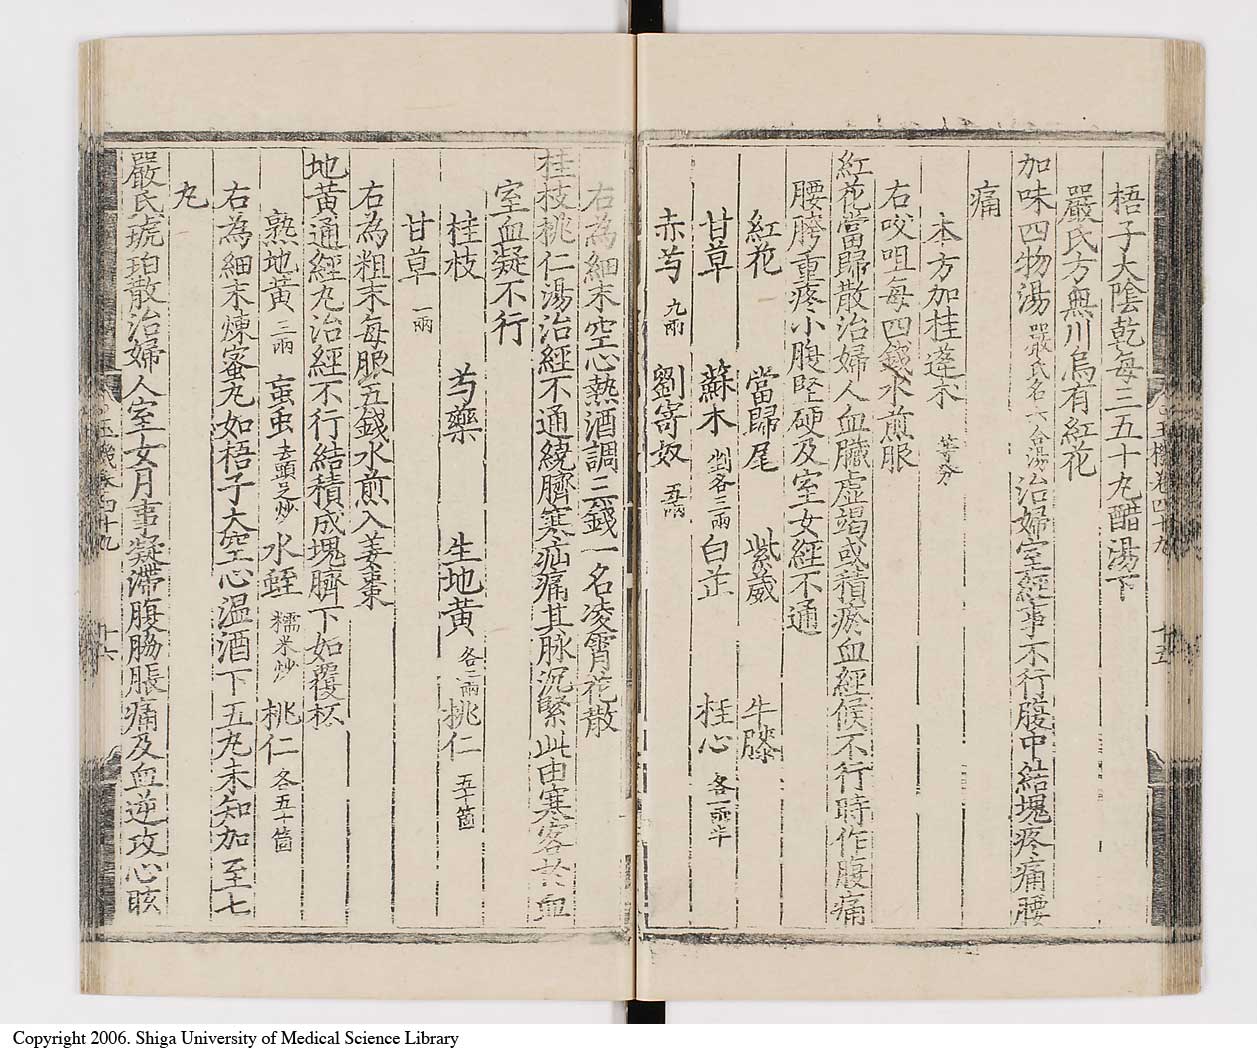 梧子大陰乾每三五十丸醋湯下
嚴氏方無川烏有紅花
加味四物湯嚴氏名六合湯治婦室經事不行腹中結塊疼痛腰
痛
本方加桂蓬朮等分
右㕮咀每四錢水煎服
紅花當歸散治婦人血臟虛竭或積瘀血經候不行時作腹痛
腰胯重疼小腹堅硬及室女經不通
紅花 當歸尾 紫葳 牛膝
甘草 蘇木剉各三兩 白芷 桂心各一兩半
赤芍九兩 劉寄奴五兩
右為細末空心熱酒調三錢一名凌霄花散
桂枝桃仁湯治經不通繞臍寒疝痛其脉沉緊此由寒客於血
室血凝不行
桂枝 芍藥 生地黃各二兩 桃仁五十箇
甘草一兩
右為粗末每服五錢水煎入姜棗
地黃通經丸治經不行結積成塊臍下如覆杯
熟地黃三兩 䖟虫去頭足炒 水蛭糯米炒 桃仁各五十箇
右為細末煉蜜丸如梧子大空心温酒下五丸未知加至七
丸
嚴氏琥珀散治婦人室女月事凝滯腹脇脹痛及血逆攻心眩
玉機卷四十九 廿六
Copyright 2006. Shiga University of Medical Science Library